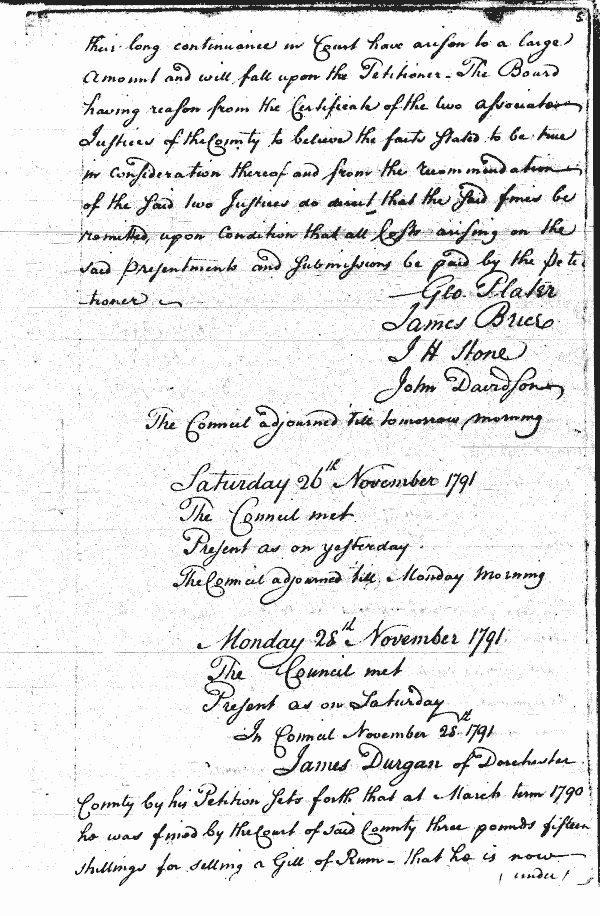 5
their long continuance in Court have arisen to a large
Amount and will fall upon the Petitioner - The Board
having reason from the Certificate of the two associate
Justices of the County to believe the facts stated to be true
in consideration thereof and from the recommendation
of the said two Justices do direct that the said fines be
remitted, upon Condition that all Costs arising on the
said Presentments and Submissions be paid by the Peti
tioner
Geo. Plater
James Brice
J H Stone
John Davidson
The Council adjourned till tomorrow morning
Saturday 26th November 1791
The Council met
Present as on yesterday.
The Council adjourned till Monday Morning
Monday 28th November 1791
The Council met
Present as on Saturday
In Council November 28th 1791
James Durgan of Dorchester
County by his Petition sets forth that at March term 1790
he was fined by the Court of said County three pounds fifteen
shillings for selling a Gill of Rum - that he is now
under